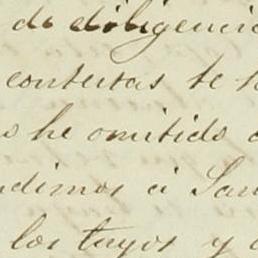 de diligencia
contestas te h
s he omitido
ndimos á San
los tuyos y